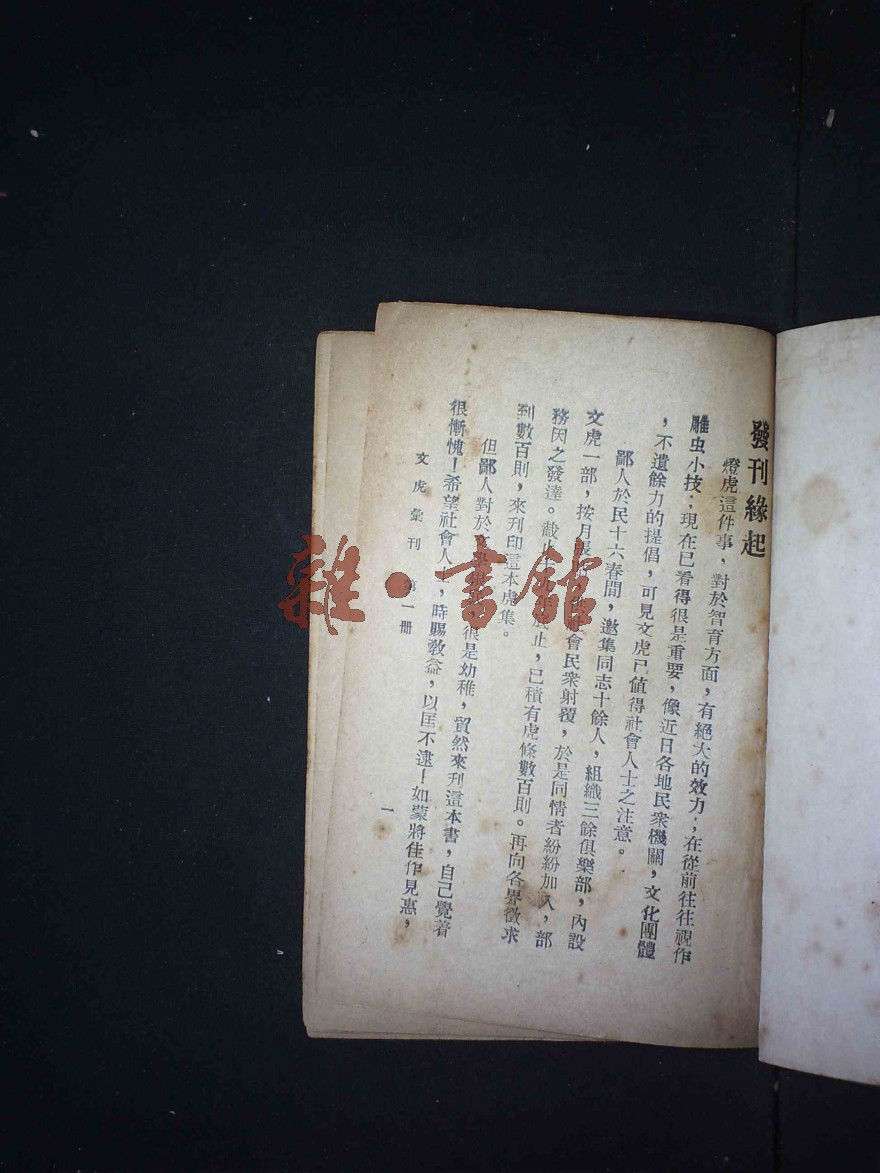 發刊緣起
燈虎這件事，對於智育方面，有絕大的效力；在從前往往視作
雕虫小技；現在已看得很是重要，像近日各地民衆機關，文化團體
，不遺餘力的提倡，可見文虎已值得社會人士之注意。
鄙人於民十六春間，邀集同志十餘人，組織三餘俱樂部，內設
文虎一部，按月 社會民衆射覆，於是同情者紛紛加入，部
務因之發達。截止 底止，已積有虎條數百則。再向各界徵求
到數百則，來刊印這本虎集。
但鄙人對於文學 很是幼稚，貿然來刊這本書，自己覺着
很慚愧！希望社會人士，時賜敎益，以匡不逮！如蒙將佳作見惠，
文虎彙刊 第一册
一
雜·書館